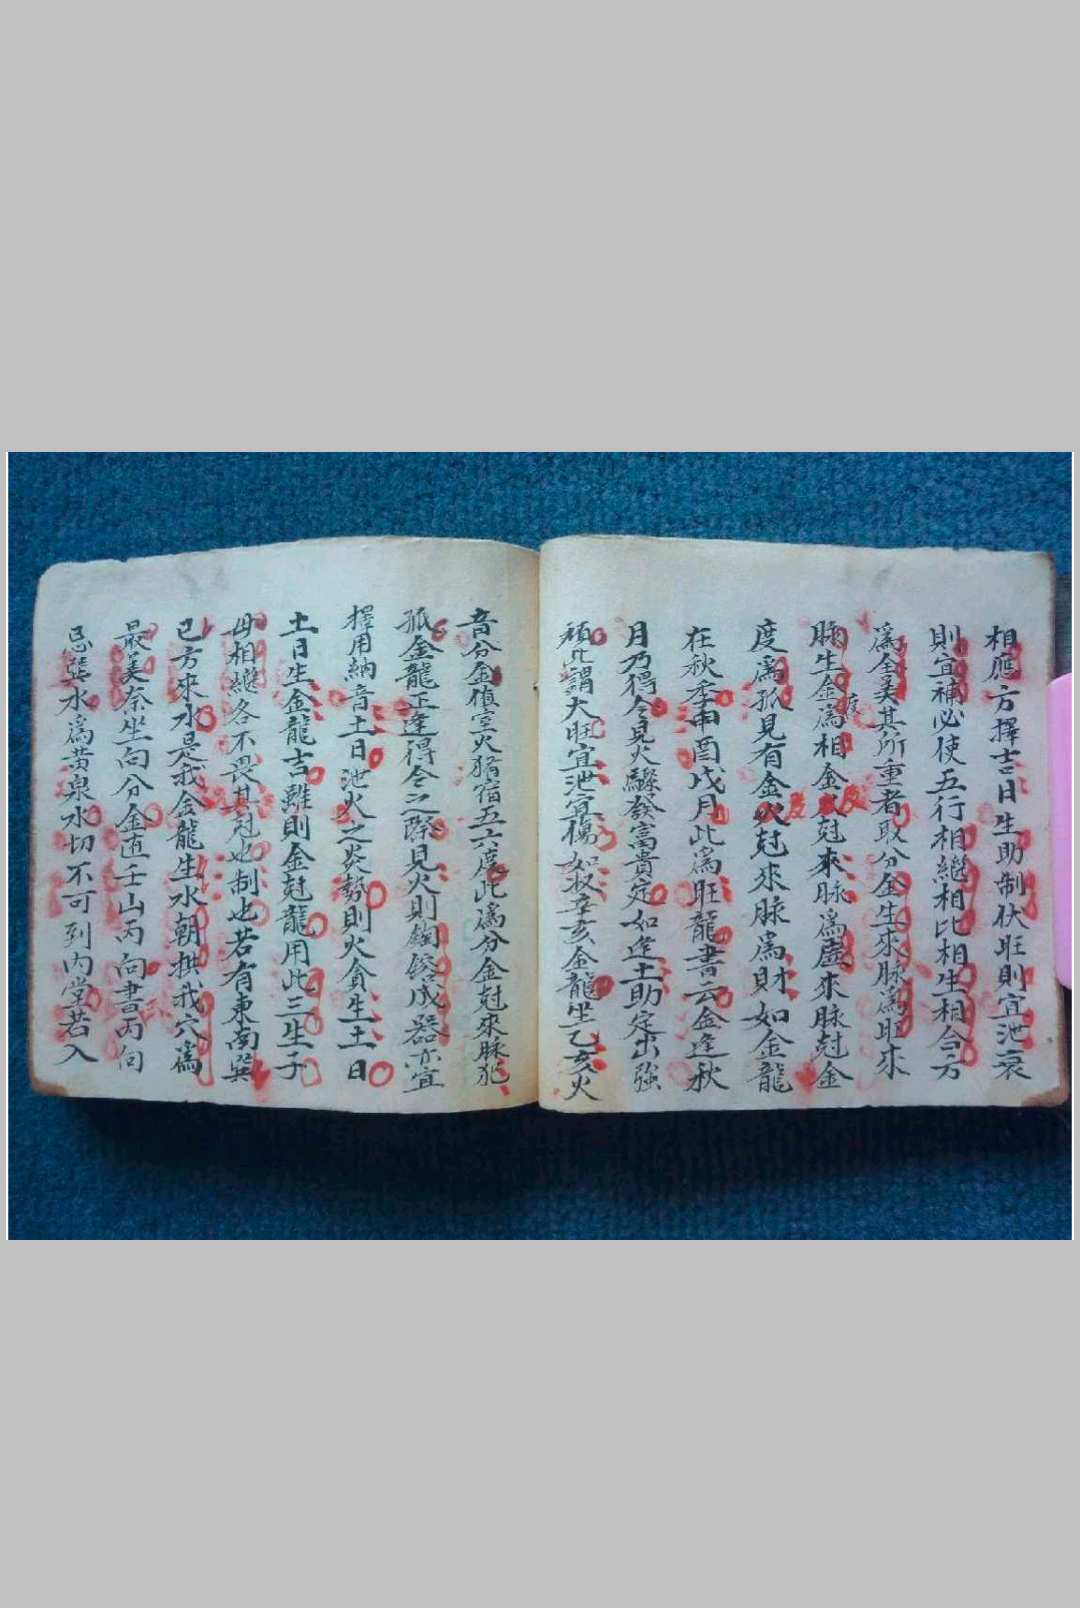 相應方擇吉日生助制伏旺則宜泄衰
則宜補必使五行相繼相比相生相合方
為全美其所重者取分金生來脉為旺來
脉生金為相金度尅來脉為虛來脉尅金
度為孤見有金反尅來脉為財如金龍
在秋季申酉戌月此為旺龍書云金逢秋
月乃得令見火驟發富貴定如逢土助定出強
積此謂大旺宜泄宜傷如扦辛亥金龍坐乙亥火
音分金值室火猪宿五六度此為分金尅來脉犯
孤金龍正逢得令之際見火則鎔成器亦宜
擇用納音土日泄火之炎勢則火貪生土日
土日生金龍吉雖則金尅龍用此三生子
母相繼各不畏其尅也制也若有東南巽
巳方來水是我金龍生水朝拱我穴為
最美奈坐向分金直壬山丙向書丙向
忌巽水為黄泉水切不可到内堂若入